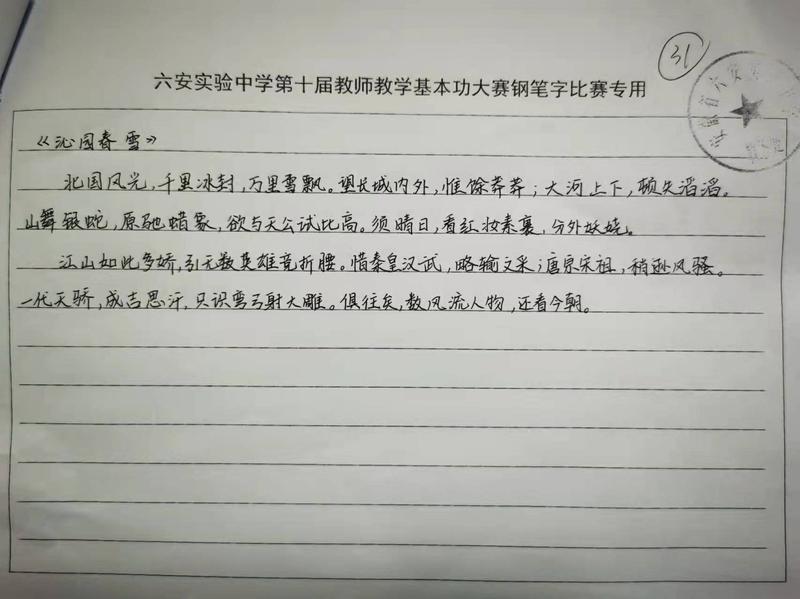 31
六安实验中学第十届教师教学基本功大赛钢笔字比赛专用
《沁园春 雪》
北国风光，千里冰封，万里雪飘。望长城内外，惟馀莽莽；大河上下，顿失滔滔。
山舞银蛇，原驰蜡象，欲与天公试比高。须晴日，看红妆素裹，分外妖娆。
江山如此多娇，引无数英雄竞折腰。惜秦皇汉武，略输文采；唐宗宋祖，稍逊风骚。
一代天骄，成吉思汗，只识弯弓射大雕。俱往矣，数风流人物，还看今朝。